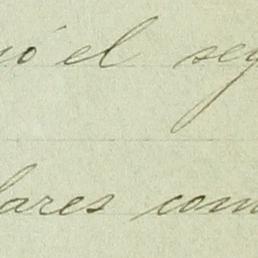 ió el seg
lares com